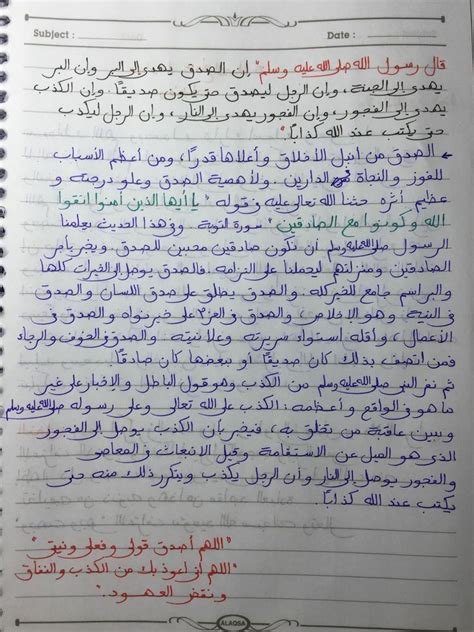 Subject :
Date :
قال رسول الله صلى الله عليه وسلم " إن الصدق يهدى إلى البر وإن البر
يهدى إلى الجنة ، وإن الرجل ليصدق حتى يكون صديقًا. وإن الكذب
يهدى إلى الفجور، وإن الفجور يهدى إلى النار، وإن الرجل ليكذب
حتى يكتب عند الله كذابًا."
الصدق من أنبل الأخلاق وأعلاها قدرًا، ومن أعظم الأسباب
للفوز والنجاة في الدارين. ولأهمية الصدق وعلو درجته و
عظيم أثره حثنا الله تعالى عليه في قوله "يا أيها الذين آمنوا اتقوا
الله وكونوا مع الصادقين" سورة التوبة وفي هذا الحديث يعلمنا
الرسول صلى الله عليه وسلم أن نكون صادقين محبين للصدق ويخبر بأجر
الصادقين ومنزلتهم ليحملنا على التزامه. فالصدق يوصل إلى الخيرات كلها
والبر اسم جامع للخير كله. والصدق يطلق على صدق اللسان والصدق
في النية وهو الإخلاص، والصدق في العزم على خير نواه والصدق في
الأعمال، وأقله استواء سريرته وعلانيته. والصدق في الخوف والرجاء
فمن اتصف بذلك كان صديقًا أو ببعضها كان صادقًا.
ثم نفر النبي صلى الله عليه وسلم من الكذب وهو قول الباطل والإخبار على غير
ما هو في الواقع وأعظمه : الكذب على الله تعالى وعلى رسوله صلى الله عليه وسلم
ويبين عاقبة من تخلق به، فيخبر بأن الكذب يوصل إلى الفجور
الذي هو الميل عن الاستقامة وقيل الانبعاث في المعاصي
والفجور يوصل إلى النار وأن الرجل يكذب ويتكرر ذلك منه حتى
يكتب عند الله كذابًا.
"اللهم أصدق قولي وفعلي ونيتي"
"اللهم إني أعوذ بك من الكذب والنفاق
ونقض العهود."
ALAQSA